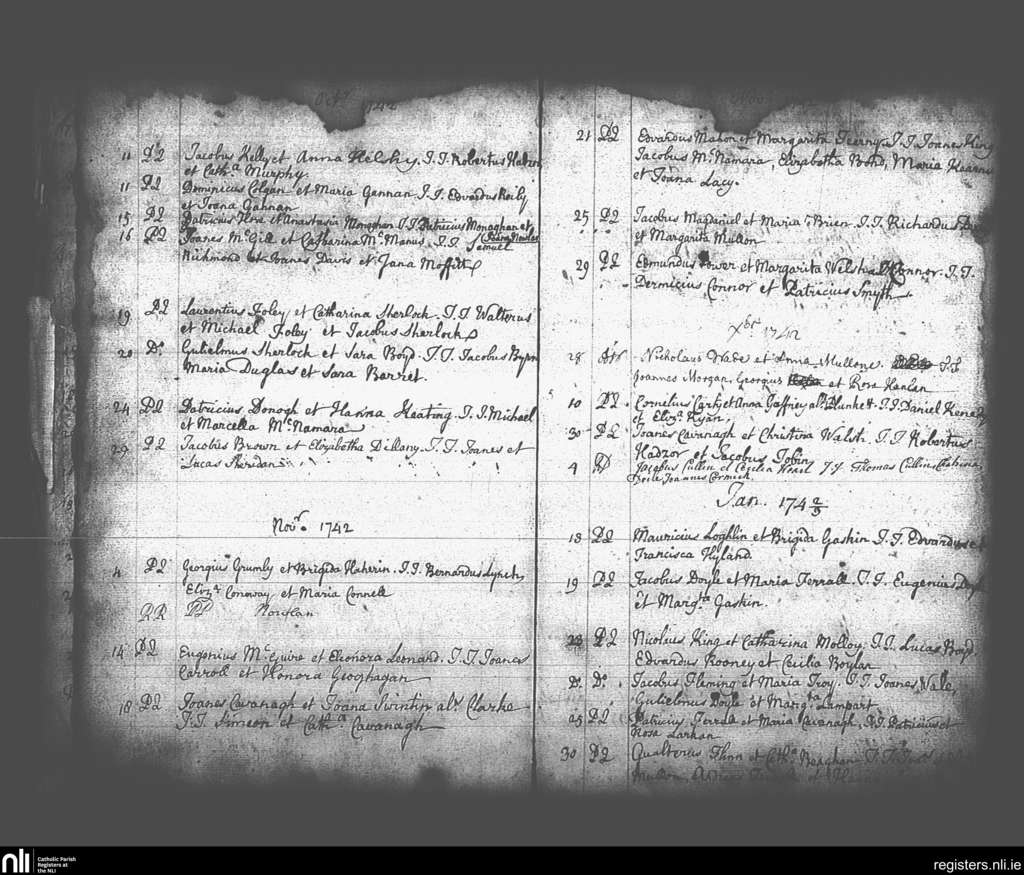 Oct. 1742
11 PL Jacobus Kelly et Anna Kelshy. T.T. Robertus
et Cath.a Murphy.
11 PL Dominicus Colgan et Maria Gannan T.T. Edvardus Reily
et Joana Gannan
15 PL Patricius et Anastasia Monaghan T.T. Patricius Monaghan et
16 PL Joanes Mc.Gill et Catharina Mc.Manus. T.T. Samuel
Richmond et Joanes Davis et Jana Moffitt
19 PL Laurentius Foley et Catharina Sherlock. T.T. Walterus
et Michael Foley et Jacobus Sherlock
20 Do. Gulielmus Sherlock et Sara Boyd. T.T. Jacobus Byrn
Maria Duglas et Sara Barret.
24 PL Patricius Donogh et Hanna Keating. T.T. Michael
et Marcella Mc.Namara
29 PL Jacobus Brown et Elizabetha Dillany. T.T. Joanes et
Lucas Sheridan
Nov.r 1742
4 PL Georgius Grumly et Brigida Haherin. T.T. Bernardus Lynch,
Eliz.a Conway et Maria Connell
RR PL
14 PL Eugenius Mc.Guire et Eleonora Leonard. T.T. Joanes
Carroll et Honora Geoghagan
18 PL Joanes Cavanagh et Joana al.s Clarke
T.T. Simeon et Cath.a Cavanagh
Nov.
21 PL Edvardus Mahon et Margarita T.T. Joanes King
Jacobus Mc.Namara, Elizabetha Bond, Maria Kearns
et Joana Lacy.
25 PL Jacobus Magdaniel et Maria Brien T.T. Richardus
et Margarita Mullon
29 PL Edmundus Power et Margarita Welsh Connor. T.T.
Dermicius Connor et Patricius Smyth
Xbr 1742
28 Nicholaus Wade et Anna Mullone. T.T.
Joannes Morgan, Georgius et Rosa Hanlan
10 PL Cornelius Carty et Anna Gaffney al.s Plunkett. T.T. Daniel
et Eliz.a Ryan,
30 PL Joanes Cavanagh et Christina Walsh. T.T. Robertus
Hadzor et Jacobus Tobin
4 Jacobus Cullin et Cecilia TT Thomas Cullin, Catharina
Joannes Cormick.
Jan. 174 2/3
18 PL Mauricius Loghlin et Brigida Gaskin T.T. Edvardus et
Francisca Hyland
19 PL Jacobus Doyle et Maria Ferrall. T.T. Eugenius
et Marg.ta Gaskin.
23 PL Nicolaus King et Catharina Molloy. T.T. Lucas Boyd.
Edvardus Rooney et Cecilia Boylan
Do. Do. Jacobus Fleming et Maria Troy. T.T. Joanes Vale,
Gulielmus Doyle et Marg.ta Lampart
25 PL Patricius Ferrall et Maria Cavanagh, T.T. Patricius et
Rosa Larkan
30 PL Qualterus Flinn et Cath.a T.T.
Mullon, et
nli Catholic Parish
Registers at
the NLI
registers.nli.ie